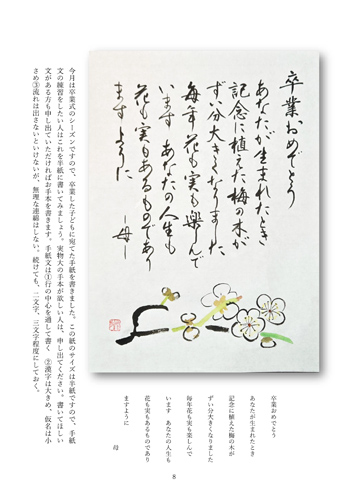 卒業おめでとう
あなたが生まれたとき
記念に植えた梅の木が
ずい分大きくなりました
毎年花も実も楽しんで
います あなたの人生も
花も実もあるものであり
ますように
―母―
今月は卒業式のシーズンですので、卒業した子どもに宛てた手紙を書きました。この紙のサイズは半紙ですので、手紙
文の練習をしたい人はこれを半紙に書いてみましょう。実物大の手本が欲しい人は、申し出てください。書いてほしい
文がある方も申し出ていただければお手本を書きます。手紙文は①行の中心を通して書く ②漢字は大きめ、仮名は小
さめ③流れは出さないといけないが、無理な連綿はしない。続けても、二文字、三文字程度にしておく。
卒業おめでとう
あなたが生まれたとき
記念に植えた梅の木が
ずい分大きくなりました
毎年花も実も楽しんで
います あなたの人生も
花も実もあるものであり
ますように
母
8